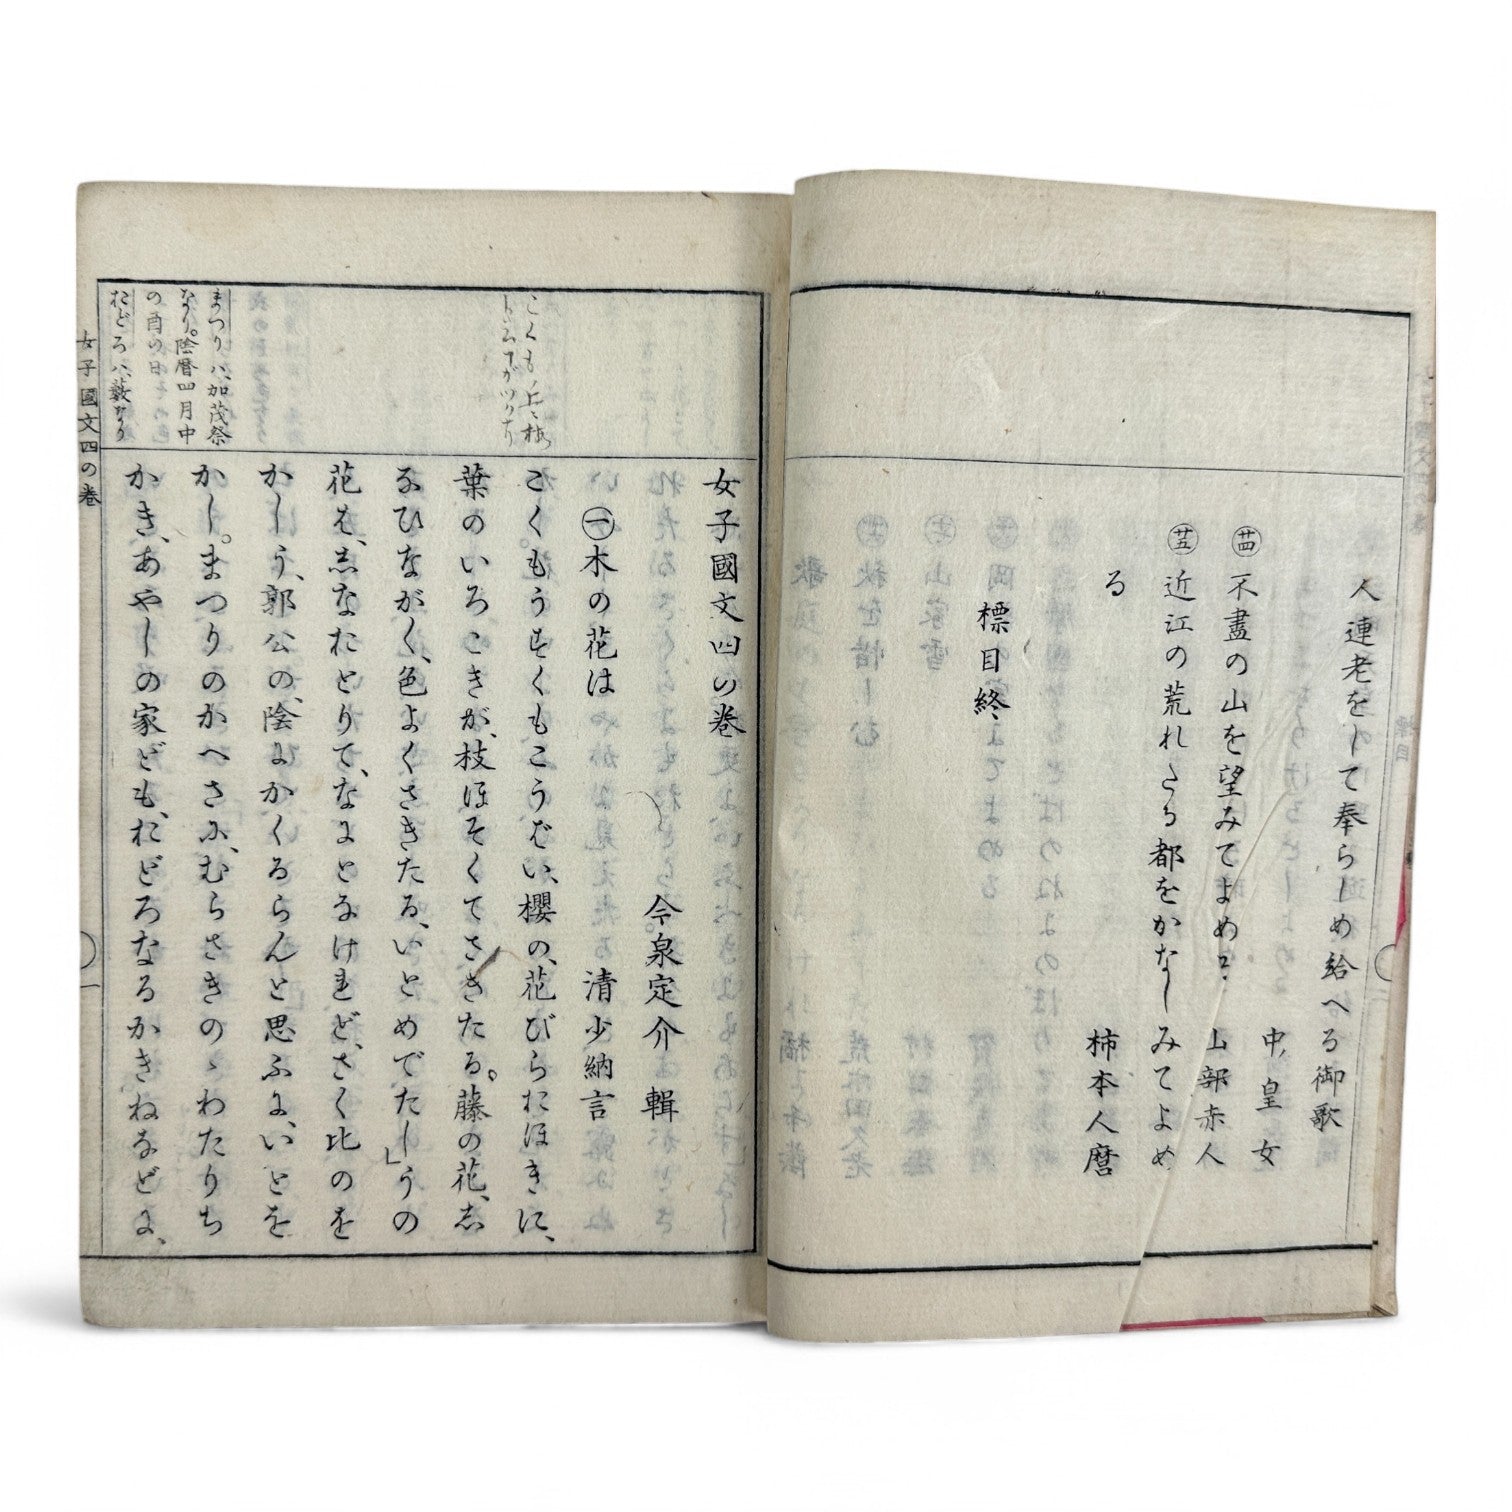 人連老をして奉らしめ給へる御歌
中皇女
廿四 不盡の山を望みてよめる
山部赤人
廿五 近江の荒れたる都をかなしみてよめ
る
柿本人麿
標目終
女子國文四の卷
今泉定介 輯
㊀木の花は 清少納言
こくも
こくもうすくもこうばい、櫻の、花びらおほきに、
葉のいろこきが、枝ほそくてさきたる。藤の花、志
なひながく、色よくさきたる、いとめでたし」うの
花は、志なおとりて、なにとなけれど、さく比のを
かしう、郭公の、陰にかくるらんと思ふに、いとを
かし。まつりのかへさに、むらさきのゝわたりち
かき、あやしの家ども、おどろなるかきねなどに、
まつりハ、加茂祭
なり。陰暦四月中
の酉の日
おどろハ、藪なり
女子國文四の卷
一